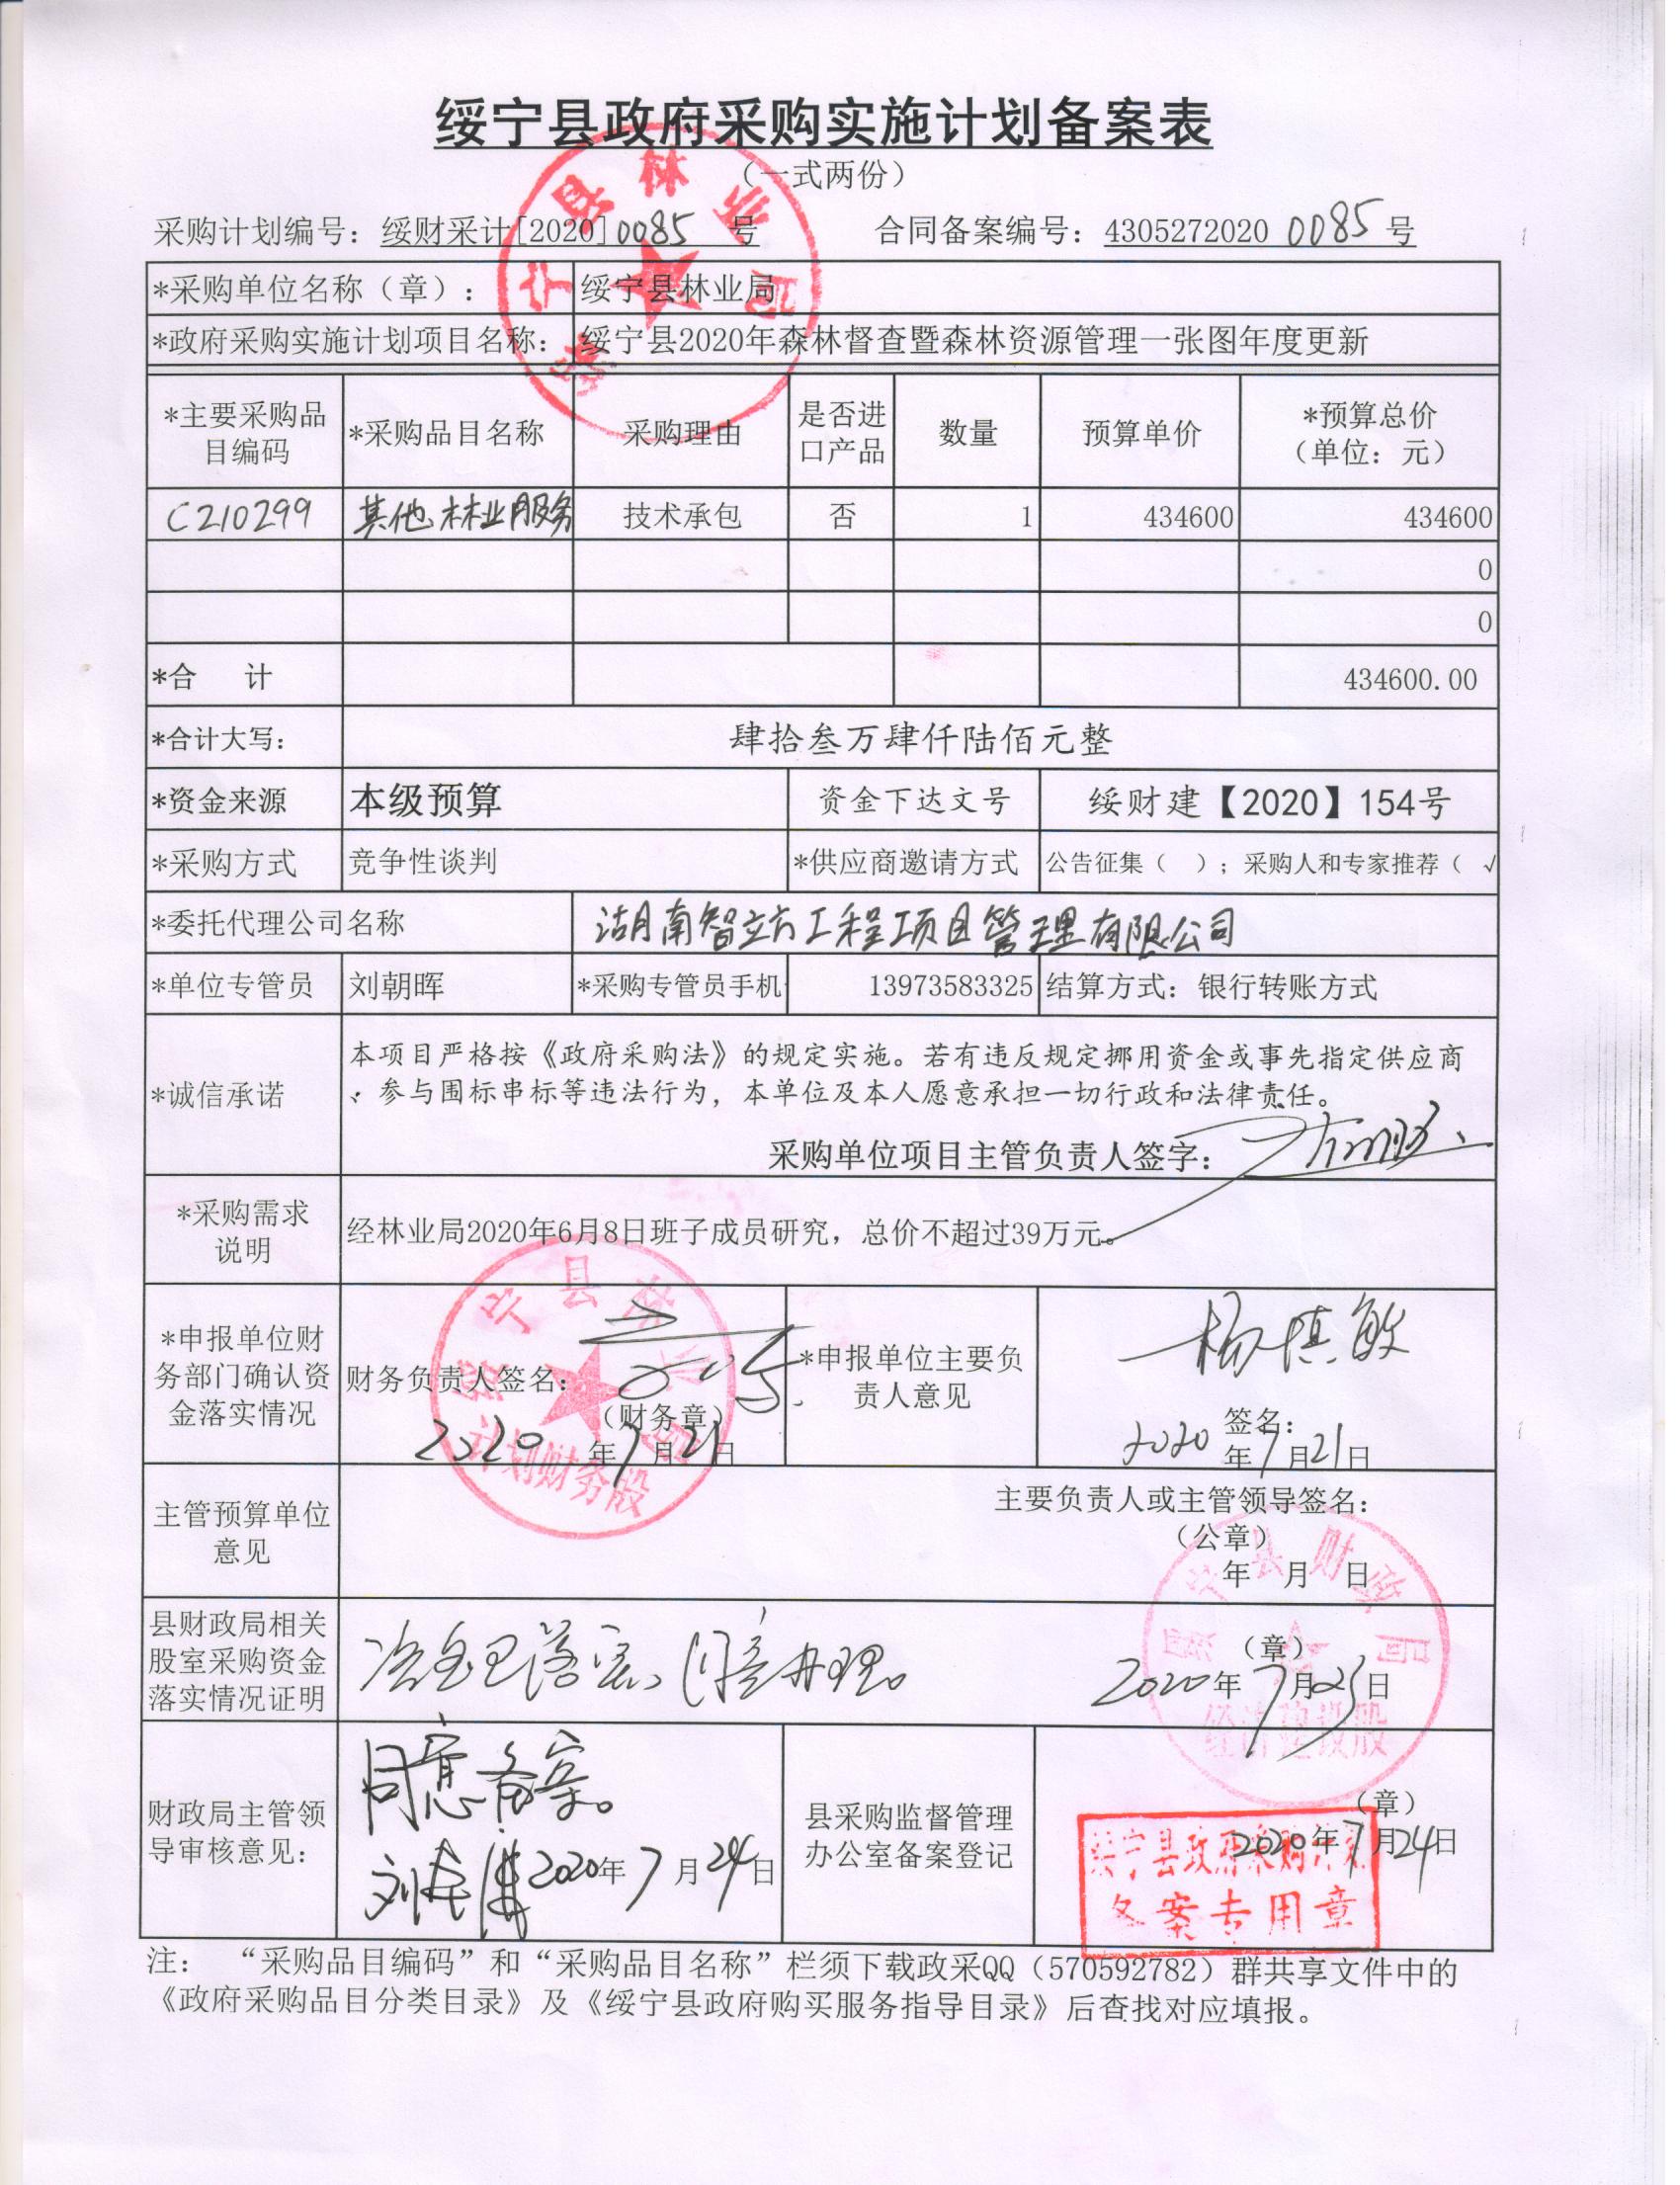 绥宁县政府采购实施计划备案表
（一式两份）
采购计划编号：绥财采计[2020]0085 号 合同备案编号：4305272020 0085号
*采购单位名称（章）： 绥宁县林业局
*政府采购实施计划项目名称： 绥宁县2020年森林督查暨森林资源管理一张图年度更新
*主要采购品目编码 *采购品目名称 采购理由 是否进口产品 数量 预算单价 *预算总价（单位：元）
C210299 其他林业服务 技术承包 否 1 434600 434600
0
0
*合 计 434600.00
*合计大写： 肆拾叁万肆仟陆佰元整
*资金来源 本级预算 资金下达文号 绥财建【2020】154号
*采购方式 竞争性谈判 *供应商邀请方式 公告征集（ ）；采购人和专家推荐（ √
*委托代理公司名称 湖南智立方工程项目管理有限公司
*单位专管员 刘朝晖 *采购专管员手机 13973583325 结算方式：银行转账方式
*诚信承诺
本项目严格按《政府采购法》的规定实施。若有违反规定挪用资金或事先指定供应商
、参与围标串标等违法行为，本单位及本人愿意承担一切行政和法律责任。
采购单位项目主管负责人签字：
*采购需求说明 经林业局2020年6月8日班子成员研究，总价不超过39万元。
*申报单位财务部门确认资金落实情况 财务负责人签名：
（财务章）
2020年7月21日
*申报单位主要负责人意见 杨慎敏
签名：
2020年7月21日
主管预算单位意见
主要负责人或主管领导签名：
（公章）
年 月 日
县财政局相关股室采购资金落实情况证明 资金已落实、同意办理。
（章）
2020年7月23日
财政局主管领导审核意见： 同意备案。
2020年7月24日
县采购监督管理办公室备案登记
（章）
2020年7月24日
注： “采购品目编码”和“采购品目名称”栏须下载政采QQ（570592782）群共享文件中的
《政府采购品目分类目录》及《绥宁县政府购买服务指导目录》后查找对应填报。
绥宁县林业局
绥宁县林业局
计划财务股
绥宁县财政局
经济建设股
绥宁县政府采购计划
备案专用章